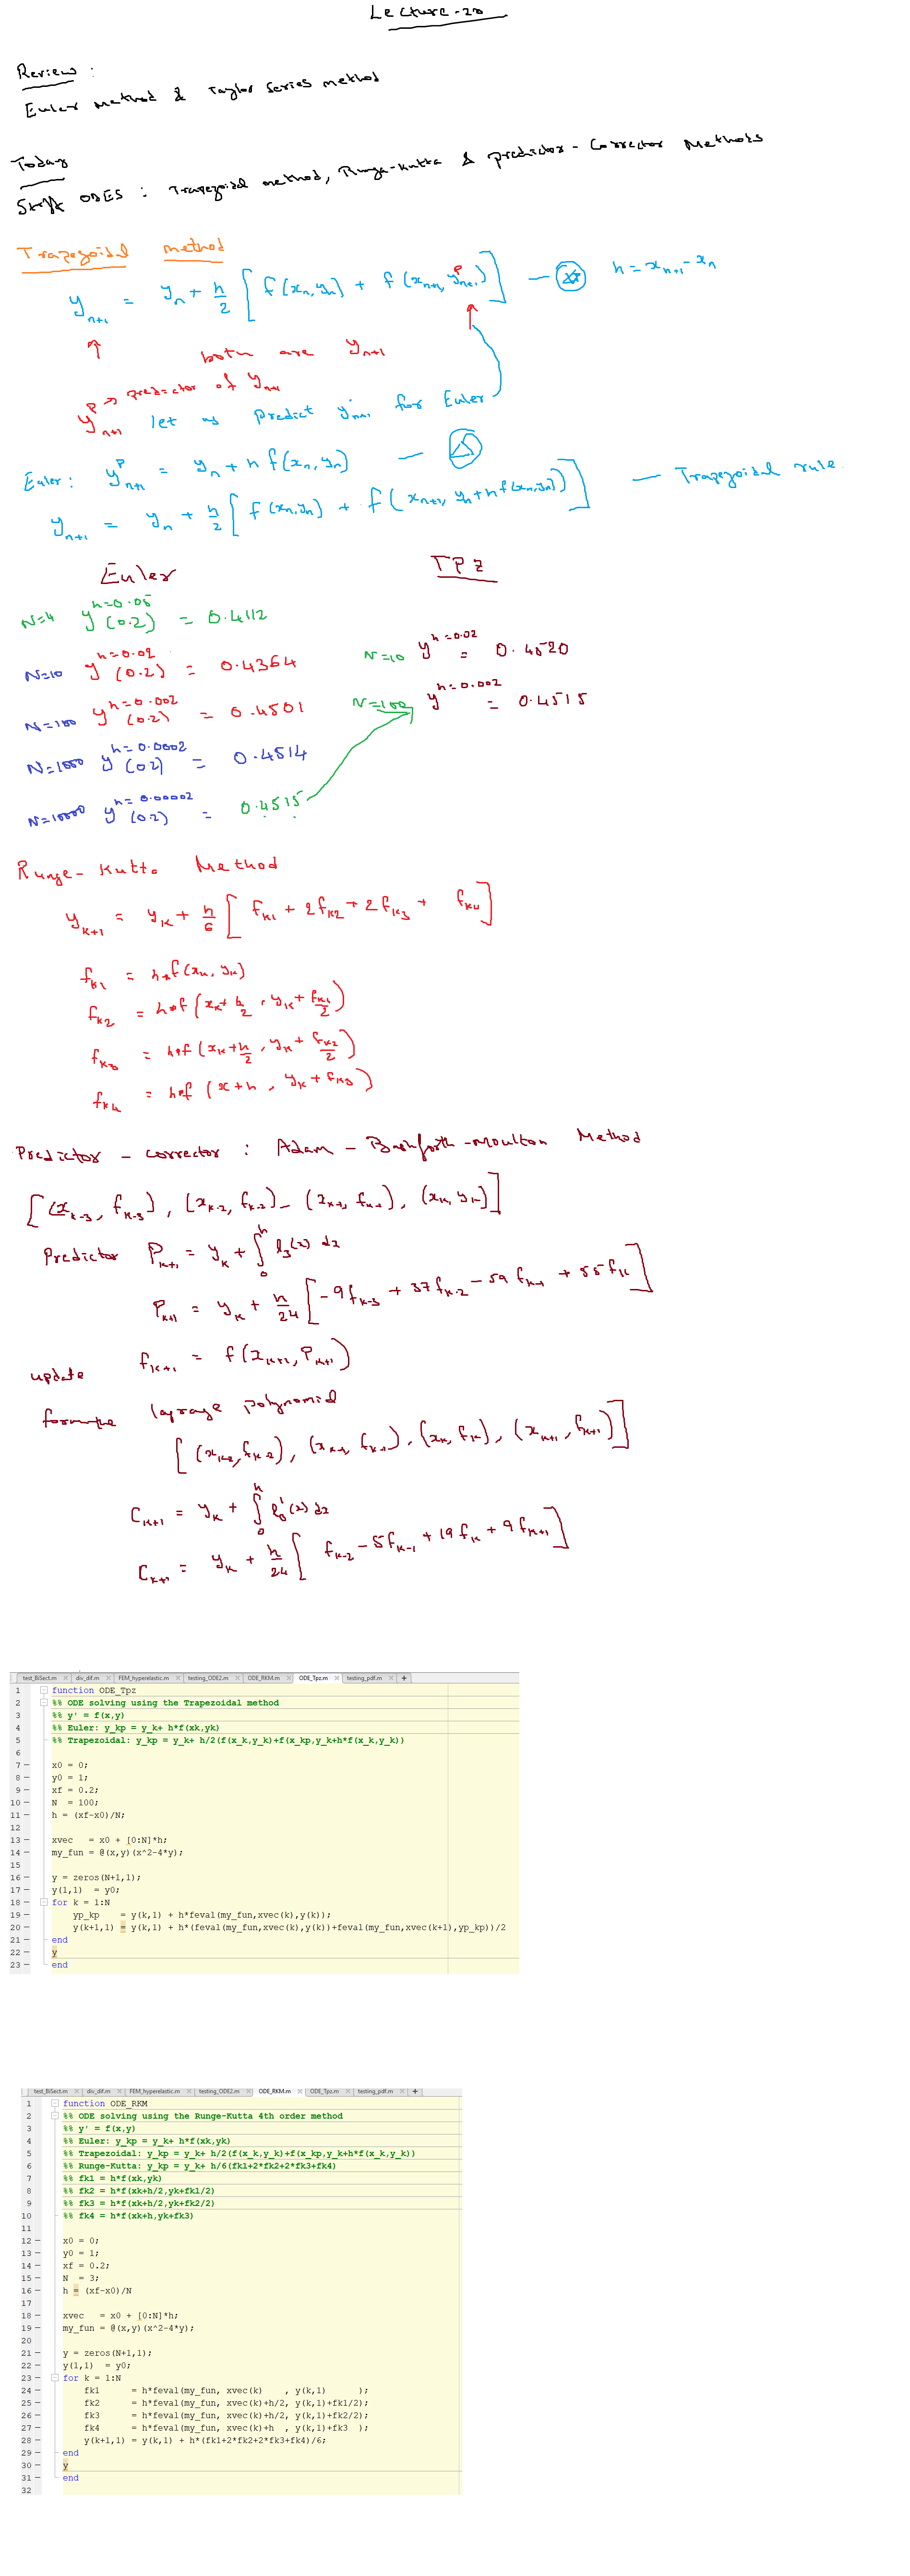 Lecture-20
Review :
Euler method & Taylor Series method
Today
Stiff ODES : Trapezoidal method, Runge-Kutta & predictor - Corrector Methods
Trapezoidal method
y_{n+1} = y_n + h/2 [ f(x_n, y_n) + f(x_{n+1}, y^p_{n+1}) ] — ☆ h = x_{n+1} - x_n
both are y_{n+1}
y^p_{n+1} → predictor of y_{n+1}
let us predict y_{n+1} for Euler
Euler : y^p_{n+1} = y_n + h f(x_n, y_n) — △
y_{n+1} = y_n + h/2 [ f(x_n, y_n) + f(x_{n+1}, y_n + h f(x_n, y_n)) ] — Trapezoidal rule
Euler TPZ
N=4 y^{h=0.05}(0.2) = 0.4112
N=10 y^{h=0.02}(0.2) = 0.4364 N=10 y^{h=0.02} = 0.4520
N=100 y^{h=0.002}(0.2) = 0.4501 N=100 y^{h=0.002} = 0.4515
N=1000 y^{h=0.0002}(0.2) = 0.4514
N=10000 y^{h=0.00002}(0.2) = 0.4515
Runge-Kutta Method
y_{k+1} = y_k + h/6 [ f_{k1} + 2f_{k2} + 2f_{k3} + f_{k4} ]
f_{k1} = h*f(x_k, y_k)
f_{k2} = h*f(x_k + h/2, y_k + f_{k1}/2)
f_{k3} = h*f(x_k + h/2, y_k + f_{k2}/2)
f_{k4} = h*f(x+h, y_k + f_{k3})
Predictor - corrector : Adam - Bashforth - Moulton Method
[ (x_{k-3}, f_{k-3}), (x_{k-2}, f_{k-2}), (x_{k-1}, f_{k-1}), (x_k, y_k) ]
Predictor P_{k+1} = y_k + ∫_0^h l_3(x) dx
P_{k+1} = y_k + h/24 [ -9f_{k-3} + 37f_{k-2} - 59f_{k-1} + 55f_k ]
update f_{k+1} = f(x_{k+1}, P_{k+1})
lagrange polynomial
[ (x_{k-2}, f_{k-2}), (x_{k-1}, f_{k-1}), (x_k, f_k), (x_{k+1}, f_{k+1}) ]
C_{k+1} = y_k + ∫_0^h l_3'(x) dx
C_{k+1} = y_k + h/24 [ f_{k-2} - 5f_{k-1} + 19f_k + 9f_{k+1} ]
test_BiSect.m div_dif.m FEM_hyperelastic.m testing_ODE2.m ODE_RKM.m ODE_Tpz.m testing_pdf.m +
1 function ODE_Tpz
2 %% ODE solving using the Trapezoidal method
3 %% y' = f(x,y)
4 %% Euler: y_kp = y_k+ h*f(xk,yk)
5 %% Trapezoidal: y_kp = y_k+ h/2(f(x_k,y_k)+f(x_kp,y_k+h*f(x_k,y_k))
6
7 x0 = 0;
8 y0 = 1;
9 xf = 0.2;
10 N = 100;
11 h = (xf-x0)/N;
12
13 xvec = x0 + [0:N]*h;
14 my_fun = @(x,y)(x^2-4*y);
15
16 y = zeros(N+1,1);
17 y(1,1) = y0;
18 for k = 1:N
19 yp_kp = y(k,1) + h*feval(my_fun,xvec(k),y(k));
20 y(k+1,1) = y(k,1) + h*(feval(my_fun,xvec(k),y(k))+feval(my_fun,xvec(k+1),yp_kp))/2
21 end
22 y
23 end
test_BiSect.m div_dif.m FEM_hyperelastic.m testing_ODE2.m ODE_RKM.m ODE_Tpz.m testing_pdf.m +
1 function ODE_RKM
2 %% ODE solving using the Runge-Kutta 4th order method
3 %% y' = f(x,y)
4 %% Euler: y_kp = y_k+ h*f(xk,yk)
5 %% Trapezoidal: y_kp = y_k+ h/2(f(x_k,y_k)+f(x_kp,y_k+h*f(x_k,y_k))
6 %% Runge-Kutta: y_kp = y_k+ h/6(fk1+2*fk2+2*fk3+fk4)
7 %% fk1 = h*f(xk,yk)
8 %% fk2 = h*f(xk+h/2,yk+fk1/2)
9 %% fk3 = h*f(xk+h/2,yk+fk2/2)
10 %% fk4 = h*f(xk+h,yk+fk3)
11
12 x0 = 0;
13 y0 = 1;
14 xf = 0.2;
15 N = 3;
16 h = (xf-x0)/N
17
18 xvec = x0 + [0:N]*h;
19 my_fun = @(x,y)(x^2-4*y);
20
21 y = zeros(N+1,1);
22 y(1,1) = y0;
23 for k = 1:N
24 fk1 = h*feval(my_fun, xvec(k) , y(k,1) );
25 fk2 = h*feval(my_fun, xvec(k)+h/2, y(k,1)+fk1/2);
26 fk3 = h*feval(my_fun, xvec(k)+h/2, y(k,1)+fk2/2);
27 fk4 = h*feval(my_fun, xvec(k)+h , y(k,1)+fk3 );
28 y(k+1,1) = y(k,1) + h*(fk1+2*fk2+2*fk3+fk4)/6;
29 end
30 y
31 end
32